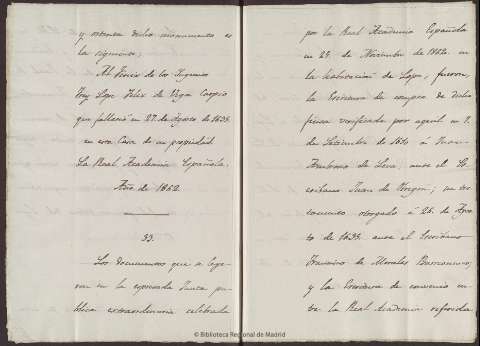 y ostenta dicho monumento es
la siguiente;
Al Fenix de los Ingenios
Frey Lope Felix de Vega Carpio
que falleció en 27 de Agosto de 1635
en esta Casa de su propiedad
La Real Academia Española.
Año de 1862
33.
Los documentos que se leye-
ron en la expresada Junta pu-
blica extraordinaria celebrada
por la Real Academia Española
en 25 de Noviembre de 1862 en
la habitacion de Lope, fueron,
la Escritura de compra de dicha
finca verificada por aquel en 7.
de Setiembre de 1610 á Juan
Ambrosio de Leva, ante el Es-
cribano Juan de Obregon; su tes-
tamento otorgado á 26 de Agos-
to de 1635 ante el Escribano
Francisco de Morales Barrionuevo;
y la Escritura de convenio en-
tre la Real Academia referida
© Biblioteca Regional de Madrid